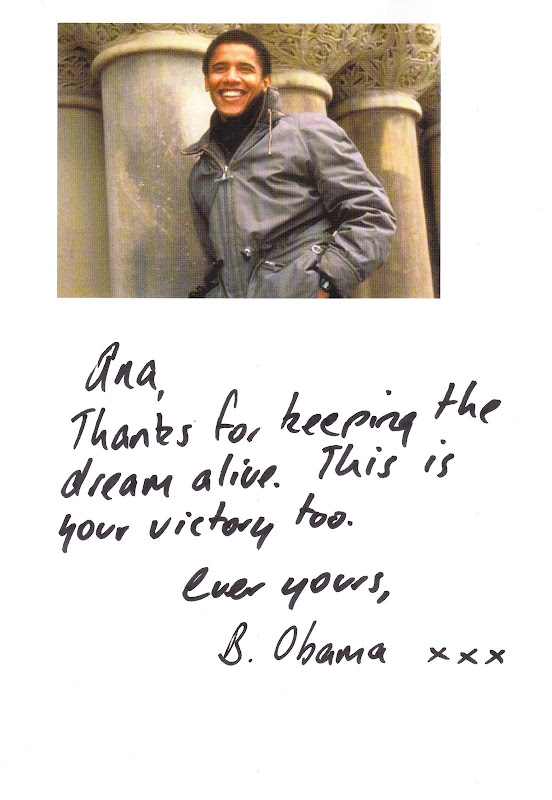 Ana,
Thanks for keeping the
dream alive. This is
your victory too.
Ever yours,
B. Obama xxx